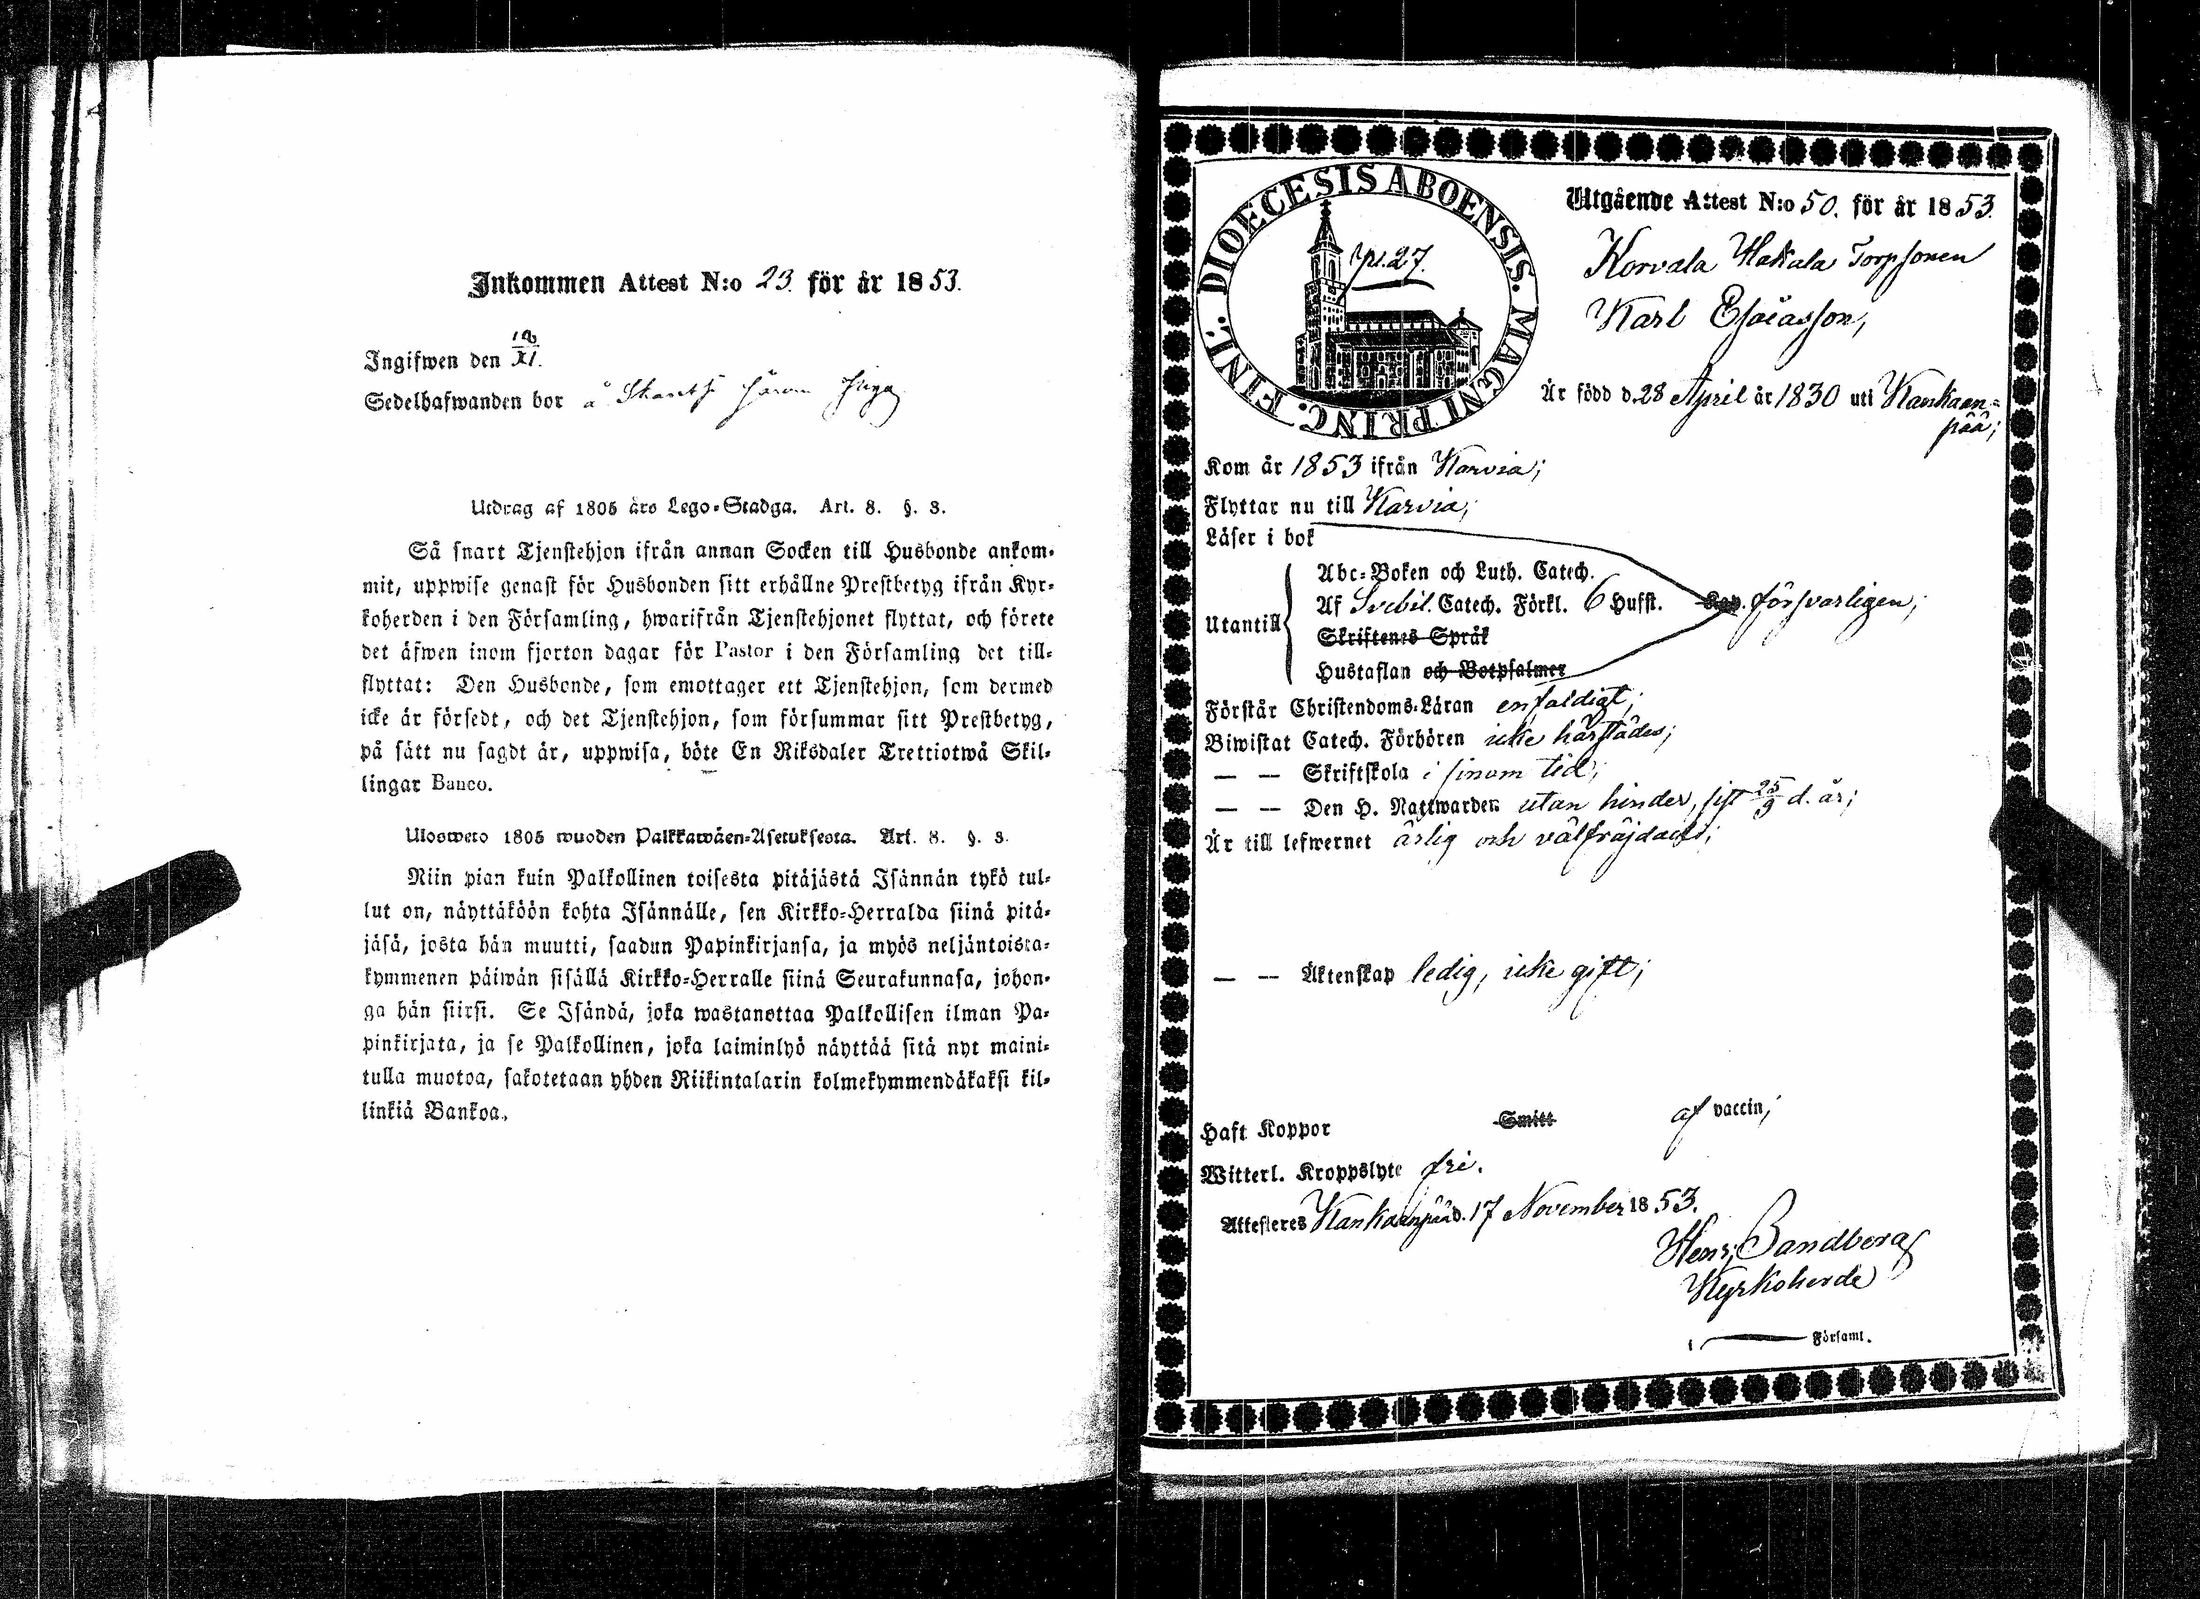 Inkommen Attest N:o 23. för år 1853.
Ingifwen den XI.
Sedelhafwanden bor å
Utdrag af 1805 års Lego-Stadga. Art. 8. §. 3.
Så snart Tjenstehjon ifrån annan Socken till Husbonde ankom-
mit, uppwise genast för Husbonden sitt erhållne Prestbetyg ifrån Kyr-
koherden i den Församling, hwarifrån Tjenstehjonet flyttat, och förete
det äfwen inom fjorton dagar för Pastor i den Församling det till-
flyttat: Den Husbonde, som emottager ett Tjenstehjon, som dermed
icke är försedt, och det Tjenstehjon, som försummar sitt Prestbetyg,
på sätt nu sagdt är, uppwisa, böte En Riksdaler Trettiotwå Skil-
lingar Banco.
Ulosweto 1805 wuoden Palkkawäen-Asetuksesta. Art. 8. §. 3.
Niin pian kuin Palkollinen toisesta pitäjästä Isännän tykö tul-
lut on, näyttäköön kohta Isännälle, sen Kirkko-Herralda siinä pitä-
jäsä, josta hän muutti, saadun Papinkirjansa, ja myös neljäntoista-
kymmenen päiwän sisällä Kirkko-Herralle siinä Seurakunnasa, johon-
ga hän siirsi. Se Isändä, joka wastanottaa Palkollisen ilman Pa-
pinkirjata, ja se Palkollinen, joka laiminlyö näyttää sitä nyt maini-
tulla muotoa, sakotetaan yhden Riikintalarin kolmekymmendäkaksi kil-
linkiä Bankoa.
DIOECESIS ABOENSIS. MAGNI PRINC. FINL.
p. 27.
Utgående Attest N:o 50. för år 1853.
Korvala Hakala Torpsonen
Karl Esaiasson,
Är född d. 28 April år 1830 uti Kankaan-
pää;
Kom år 1853 ifrån Karvia;
Flyttar nu till Karvia;
Läser i bok
Abc-Boken och Luth. Catech.
Utantill Af Svebil. Catech. Förkl. 6 Hufst. försvarligen;
Skriftenes Språk
Hustaflan och Botpsalmer
Förstår Christendoms-Läran enfaldigt;
Biwistat Catech. Förhören icke härstädes;
— — Skriftskola i sinom tid;
— — Den H. Nattwarden utan hinder, sist 25/9 d. år;
Är till lefwernet ärlig och välfräjdad;
— — Äktenskap ledig, icke gift;
Haft Koppor Smitt af vaccin;
Witterl. Kroppslyte fri.
Attesteres Kankaanpää d. 17 November 1853.
Henr. Sandberg
Kyrkoherde
i Församl.